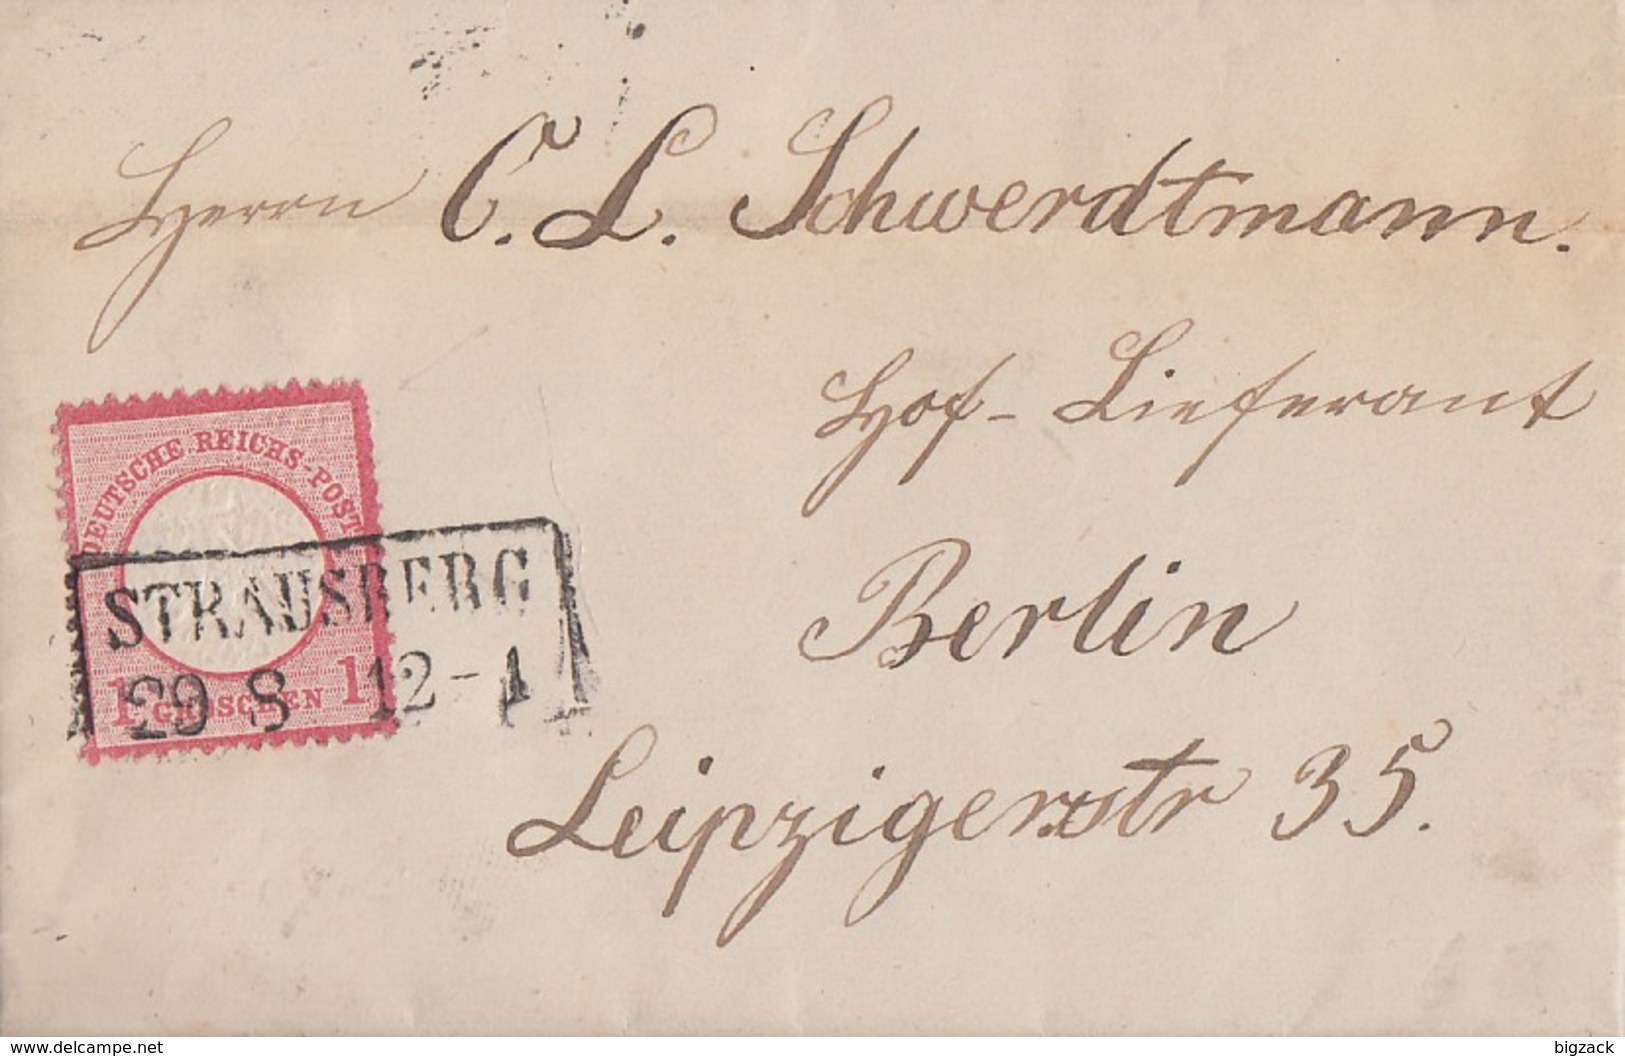 Herrn C. L. Schwerdtmann.
Hof-Lieferant
Berlin
Leipzigerstr 35.
DEUTSCHE REICHS-POST
1 GROSCHEN 1
STRAUSBERG
29 8 12-1
www.delcampe.net
bigzack